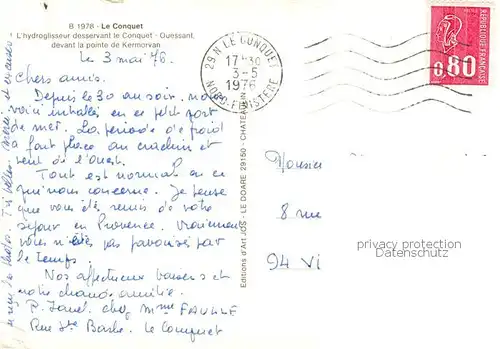 B 1976 - Le Conquet
L'hydroglisseur desservant le Conquet - Ouessant,
devant la pointe de Kermorvan
Le 3 mai 76.
Chers amis.
Depuis le 30 au soir, nous
voici installés en ce petit port
de mer. La période de froid
a fait place au crachin et
vent de l'Ouest.
Tout est normal en ce
qui nous concerne. Je pense
que vous êtes remis de votre
séjour en Provence. Vraiment
vous n'êtes pas favorisés par
le temps.
Nos affectueux baisers et
notre grande amitié.
P. chez Mme FAULLE
Rue Ste Barbe. Le Conquet
photos. Très belles. Merci et excuses
Editions d'Art JOS - LE DOARE 29150 - CHATEAULIN
29 N LE CONQUET
17 H 30
3-5
1976
NORD-FINISTERE
REPUBLIQUE FRANÇAISE
0,80
Monsieur
8 rue
94 Vi
privacy protection
Datenschutz